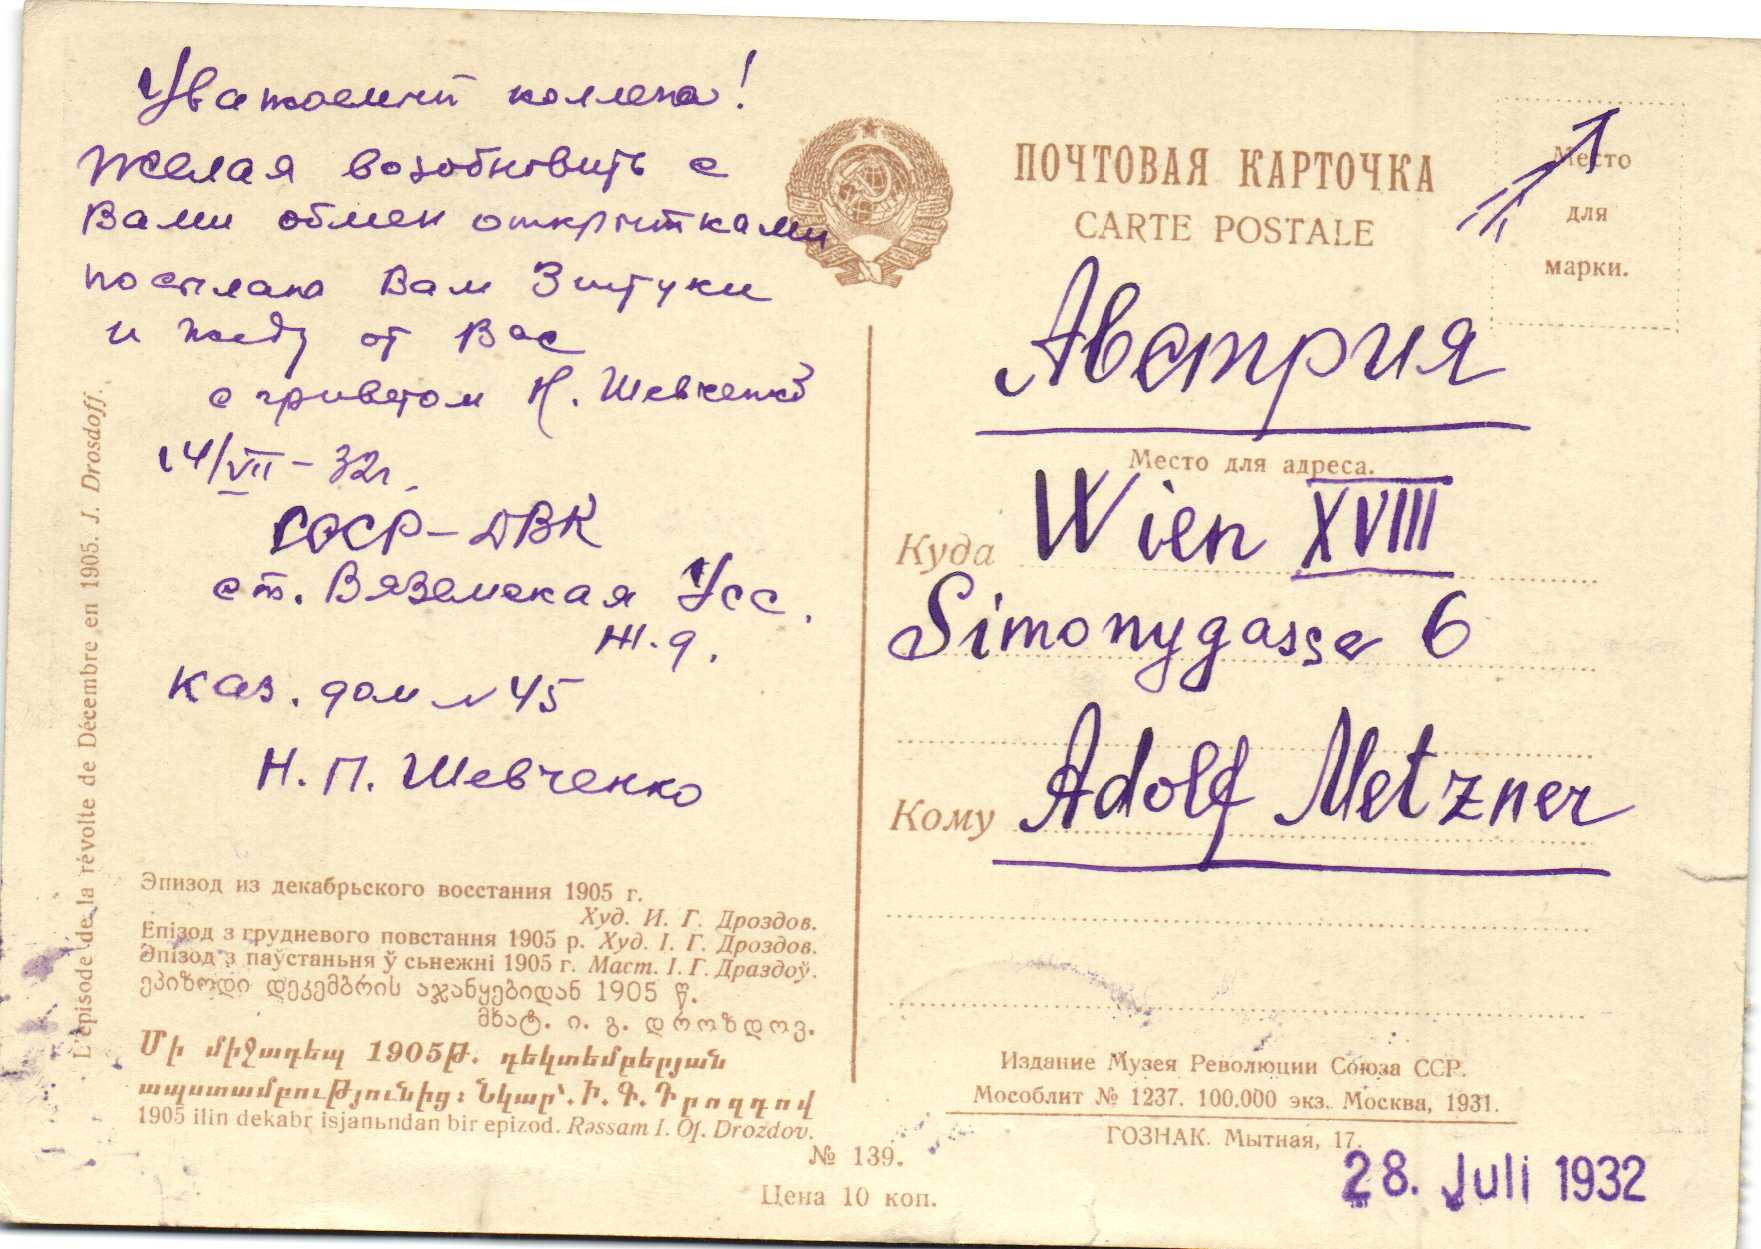 Уважаемый коллега!
Желая возобновить с
Вами обмен открытками
посылаю Вам 3 штуки
и жду от Вас
с приветом Н. Шевченко
14/VII – 32 г.
СССР – ДВК
ст. Вяземская Усс.
ж. д.
Каз. дом № 45
Н. П. Шевченко
L'épisode de la révolte de Décembre en 1905. J. Drosdoff.
Эпизод из декабрьского восстания 1905 г.
Худ. И. Г. Дроздов.
Епізод з грудневого повстання 1905 р. Худ. І. Г. Дроздов.
Эпізод з паўстаньня ў сьнежні 1905 г. Маст. І. Г. Драздоў.
ეპიზოდი დეკემბრის აჯანყებიდან 1905 წ.
მხატ. ი. გ. დროზდოვ.
Մի միջադեպ 1905Թ. դեկտեմբերյան
ապստամբությունից: Նկար՝. Ի. Գ. Դրոզդով
1905 ilin dekabr isjanьndan bir epizod. Rəssam I. Of. Drozdov.
№ 139.
Цена 10 коп.
ПОЧТОВАЯ КАРТОЧКА
CARTE POSTALE
Место
для
марки.
Австрия
Место для адреса.
Куда Wien XVIII
Simonygasse 6
Кому Adolf Metzner
Издание Музея Революции Союза ССР.
Мособлит № 1237. 100.000 экз. Москва, 1931.
ГОЗНАК. Мытная, 17.
28. Juli 1932